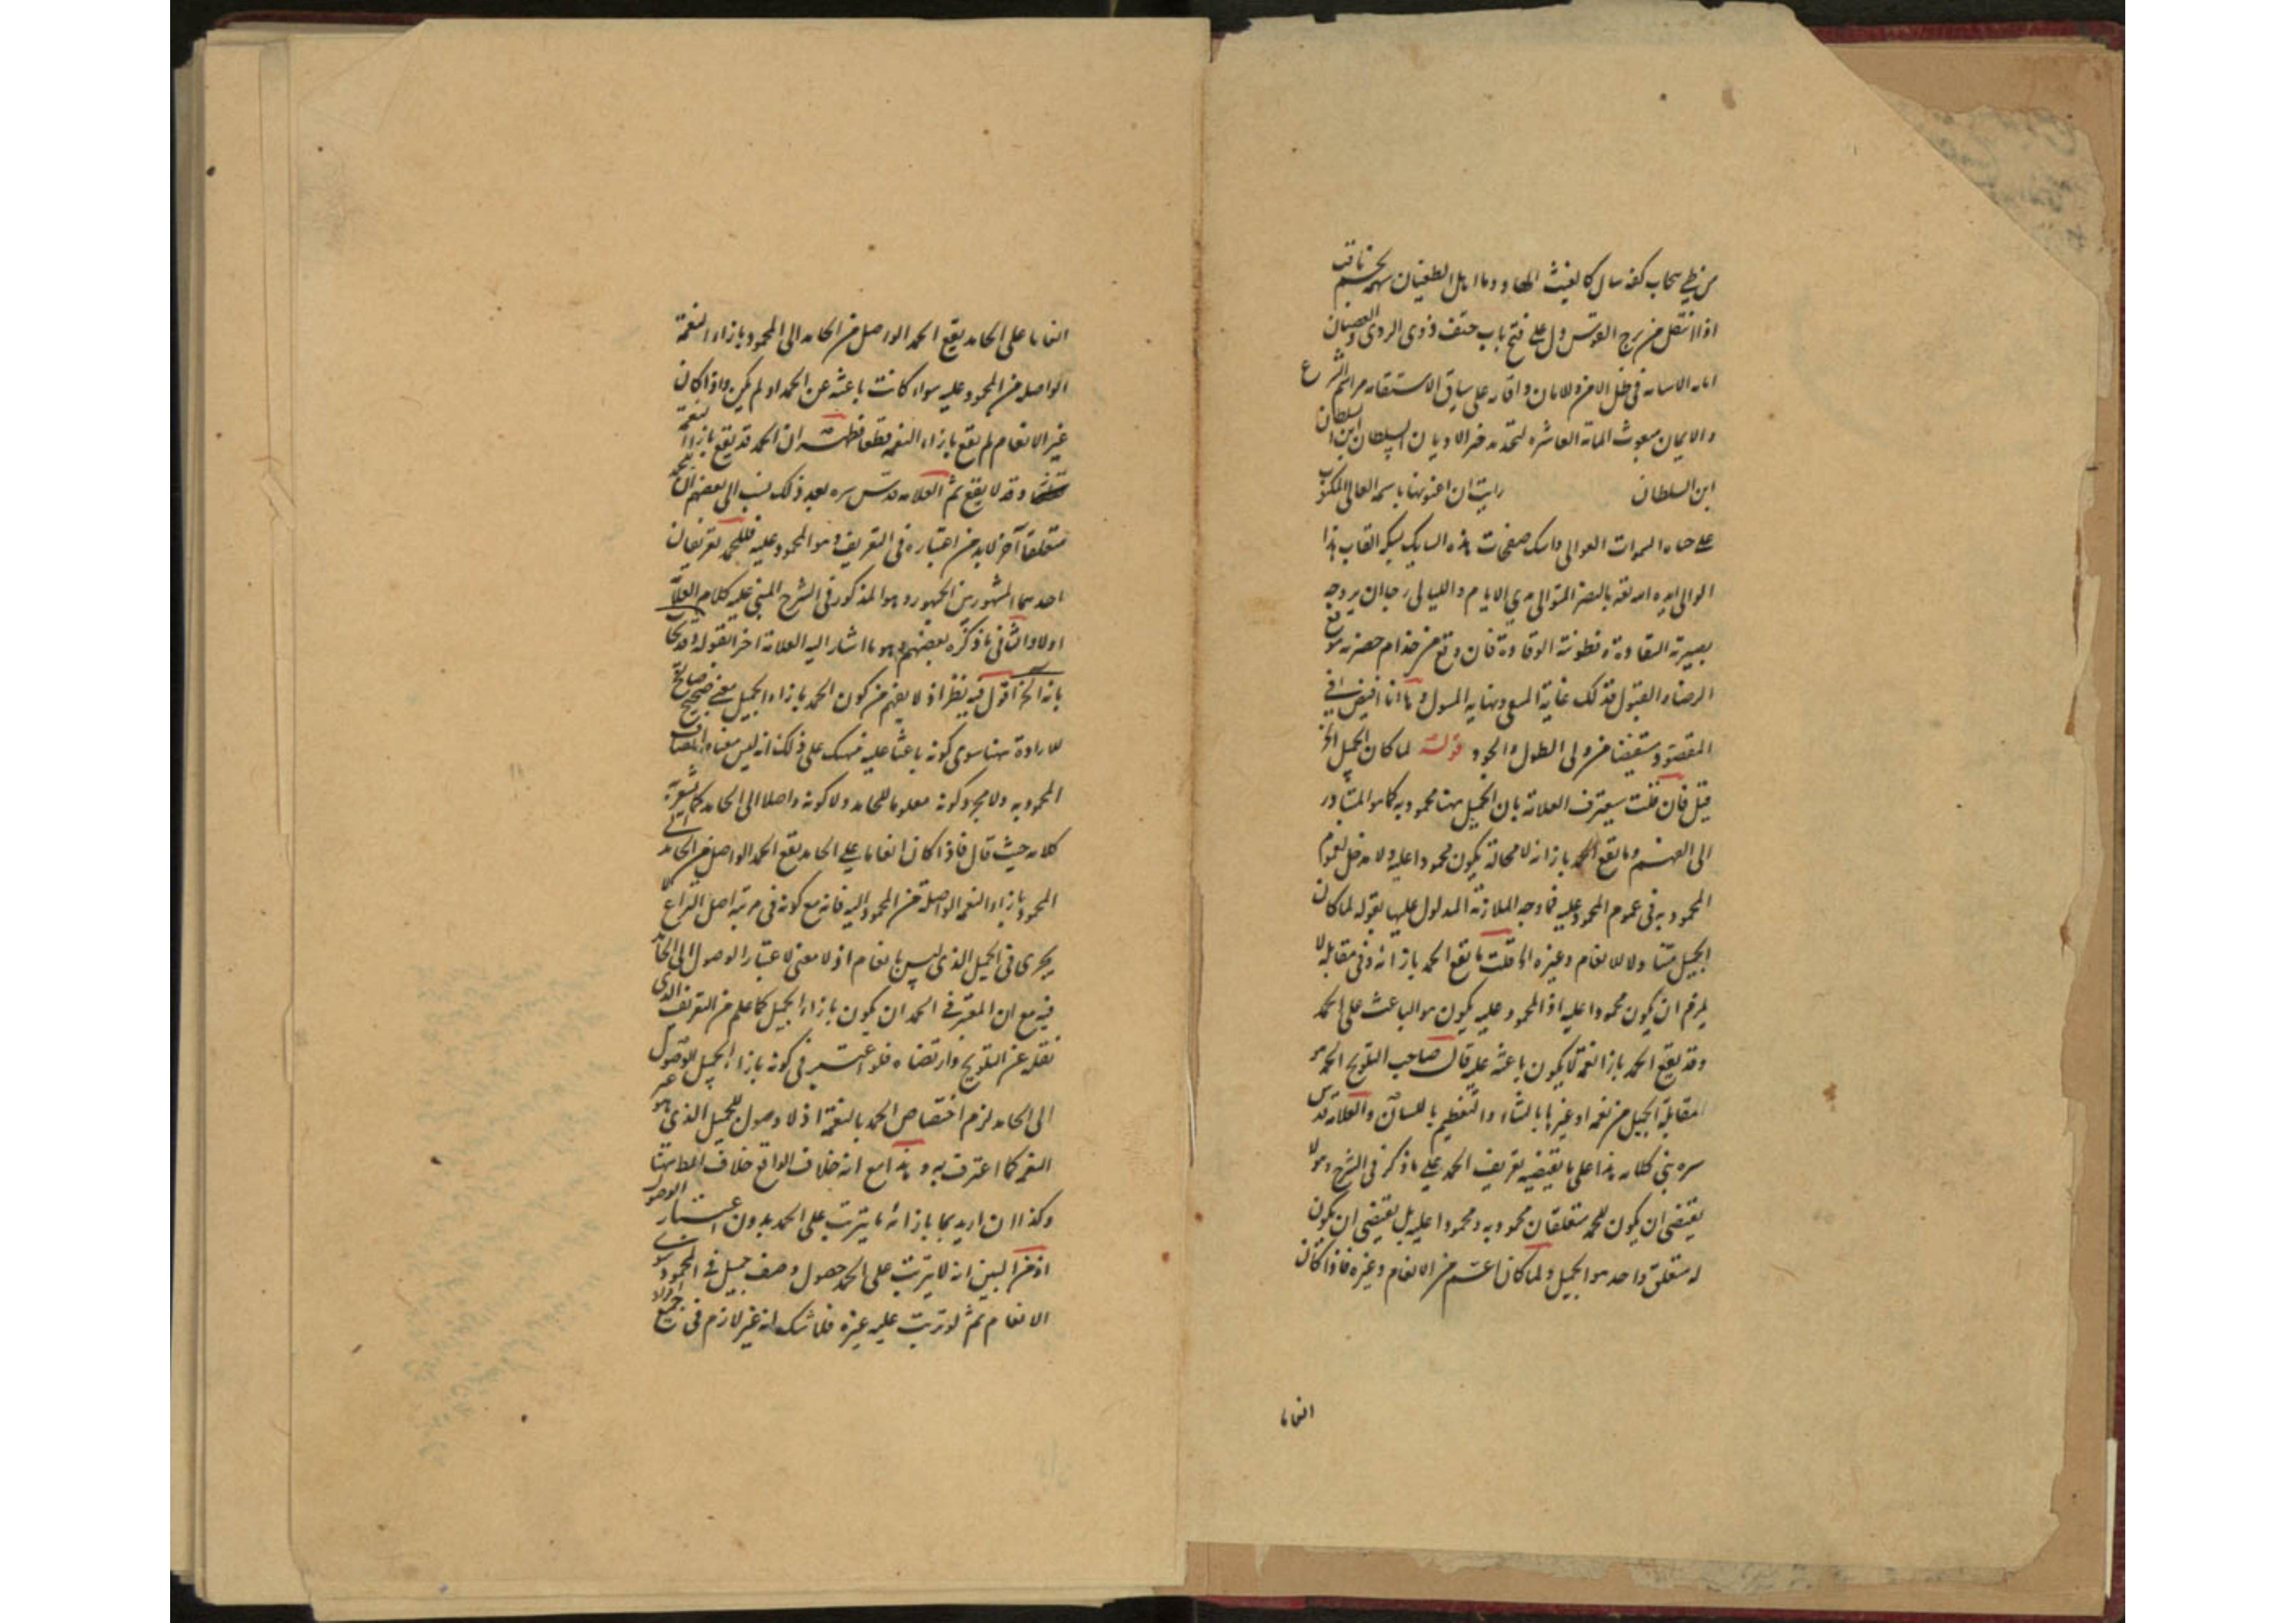 من ظل سحاب كفه سال كالغيث ودماء اهل الطغيان سهمه كنجم ثاقب
اذا انتقل من برج القوس دل على فتح باب حتف ذوى الردى والعصيان
انام الانام فى ظل الامن والامان واقام على ساق الاستقامه مراسم الشرع
والايمان مبعوث المائة العاشره خير الاديان السلطان ابن السلطان
ابن السلطان رايت ان اعنونها باسمه العالى المكتوب
على جباه السموات العوالى صفحات هذه القاب هذا
الوالى ايده الله تعالى بالنصر المتوالى مدى الايام والليالى رجاء ان يروجه
بصيرته النقادة وفطنته الوقادة فان وقع من خدام حضرته موقع
الرضا والقبول فذلك غاية المسعى ونهاية المسول وها انا افيض فى
المقصود مستفيضا من ولى الطول والجود قوله لما كان الجميل الخ
قيل فان قلت سيعترف العلامة بان الجميل هنا محمود به كما هو المتبادر
الى الفهم وما يقع الحمد بازائه لا محالة يكون محمودا عليه ولا مدخل لعموم
المحمود به فى عموم المحمود عليه فما وجه الملازمة المدلول عليها بقوله لما كان
الجميل متناولا للانعام وغيره الخ قلت ما يقع الحمد بازائه وفى مقابله لا
يلزم ان يكون محمودا عليه اذ المحمود عليه يكون هو الباعث على الحمد
وقد يقع الحمد بازاء نعمة لا يكون باعثه عليه قال صاحب التلويح الحمد هو
المقابلة الجميل من نعمه او غيرها بالثناء والتعظيم باللسان والعلامة قدس
سره بنى كلامه هذا على ما يقتضيه تعريف الحمد على ما ذكر فى الشرح وهو لا
يقتضى ان يكون للحمد متعلقان محمود به ومحمودا عليه بل يقتضى ان يكون
له متعلق واحد هو الجميل ولما كان اعم من الانعام وغيره فاذا كان
انعاما
انعاما على الحامد يقع الحمد الواصل من الحامد الى المحمود بازاء النعمة
الواصله من المحمود عليه سواء كانت باعثه عن الحمد او لم يكن واذا كان
غير الانعام لم يقع بازاء النعمه قطعا فظهر ان الحمد قد يقع بازاء النعمة
وقد لا يقع ثم العلامه قدس سره بعد ذلك نسب الى بعضهم ان للحمد
متعلقا آخر لا بد من اعتباره فى التعريف وهو المحمود عليه فللحمد تعريفان
احدهما المشهور بين الجمهور وهو المذكور فى الشرح المبنى عليه كلام العلامة
اولا والثانى ما ذكره بعضهم وهو ما اشار اليه العلامة اخرا بقوله
بانه الخ اقول فيه نظر اذ لا يفهم من كون الحمد بازاء الجميل معنى صحيح صالح
للارادة هنا سوى كونه باعثا عليه ذلك انه ليس معناه اتصاف
المحمود به ولا مجرد كونه معلوما للحامد ولا كونه واصلا الى الحامد كما يشعر به
كلامه حيث قال فاذا كان انعاما على الحامد يقع الحمد الواصل من الحامد الى
المحمود بازاء النعمه الواصله من المحمود اليه فانه مع كونه فى مرتبة اصل النزاع لا
يجرى فى الجميل الذى ليس بانعام اذ لا معنى لاعتبار الوصول الى الحامد
فيه مع ان المعتبر فى الحمد ان يكون بازاء الجميل كما علم من التعريف الذى
نقله عن التلويح وارتضاه فلو اعتبر فى كونه بازاء الجميل الوصول
الى الحامد لزم اختصاص الحمد بالنعمة اذ لا وصول للجميل الذى هو غير
النعم كما اعترف به وهذا مع انه خلاف الواقع خلاف المط هنا
وكذا ان اريد بما بازائه ما يترتب على الحمد بدون اعتبار الوصول
اذ من البين انه لا يترتب على الحمد حصول وصف جميل فى المحمود سوى
الانعام ثم لو ترتب عليه غيره فلا شك انه غير لازم فى جميع افراد